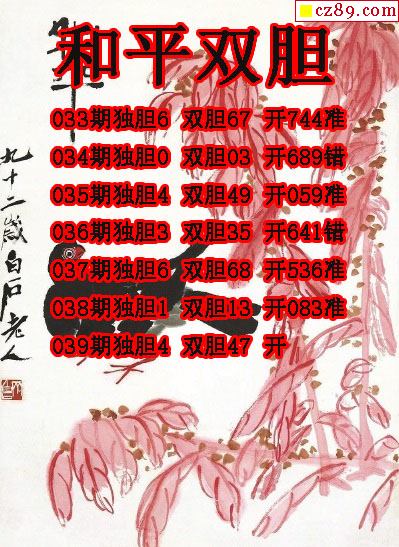 cz89.com
和平双胆
033期独胆6 双胆67 开744准
034期独胆0 双胆03 开689错
035期独胆4 双胆49 开059准
036期独胆3 双胆35 开641错
037期独胆6 双胆68 开536准
038期独胆1 双胆13 开083准
039期独胆4 双胆47 开
九十二岁白石老人